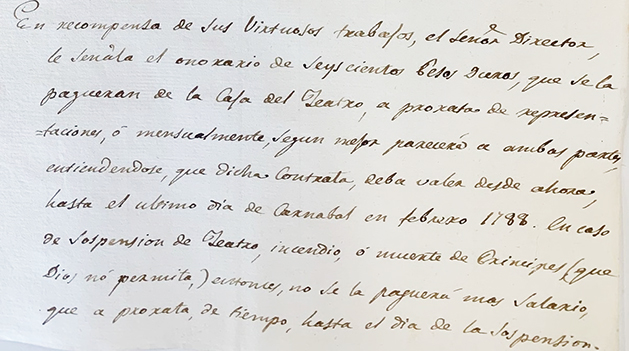 En recompensa de sus Virtuosos trabajos, el señor Director,
le señala el onorario de Seyscientos Pesos Duros, que se la
pagueran de la Casa del Teatro, a proxata de represen-
=taciones, ó mensualmente, segun mejor parecerá a ambas partes,
entiendendose, que dicha Contrata, deba valer desde ahora,
hasta el ultimo dia de Carnabal en febrero 1788. En caso
de Sospension de Teatro, incendio, ó muerte de Principes (que
Dios nó permita,) entonces, no se la paguerá mas Salario,
que a proxata, de tiempo, hasta el dia de la Sospension.